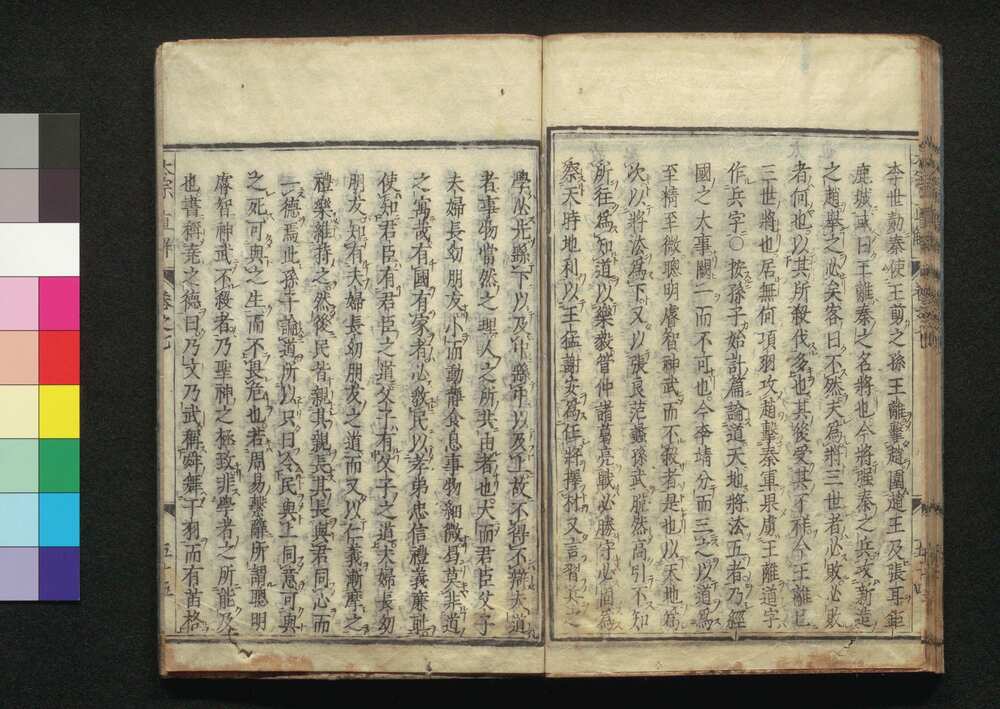 李世勣秦使王剪之孫王離擊趙圍趙王及張耳鉅
鹿城或曰王離秦之名將也今將強秦之兵攻新造
之趙舉之必矣客曰不然夫為將三世者必敗必敗
者何也以其所殺伐多也其後受其不祥今王離已
三世將也居無何項羽攻趙擊秦軍果虜王離道字
作兵字○按孫子始計篇論道天地將法五者乃經
國之大事闕一而不可也今李靖分而三之以道為
至精至微聰明睿智神武而不殺者是也以天地為
次以將法為下又以張良范蠡孫武脫然高引不知
所往為知道以樂毅管仲諸葛亮戰必勝守必固為
察天時地利以王猛謝安為任將擇材又言習兵之
學必先繇下以及中繇中以及上故不得不辯夫道
者事物當然之理人之所共由者也大而君臣父子
夫婦長幼朋友小而動靜食息事物細微爲莫非道
之寓故有國有家者必教民以孝弟忠信禮義廉恥
使知君臣有君臣之道父子有父子之道夫婦長幼
朋友知有夫婦長幼朋友之道而又以仁義漸摩之
禮樂維持之然後民皆親其親長其長與君同心而
一德焉此孫子論道所以只曰令民與上同意可與
之死可與之生而不畏危也若周易繫辭所謂聰明
睿智神武不殺者乃聖神之極致非學者之所能及
也書稱堯之德曰乃文乃武稱舜舞干羽而有苗格